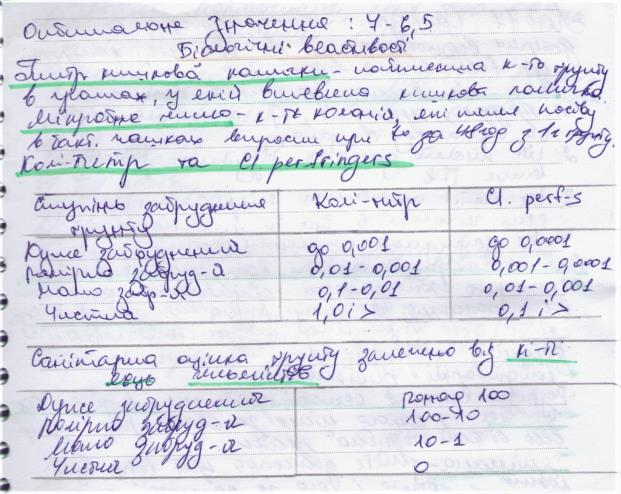 Оптимальне значення: 7-6,5
Біологічні властивості
Титр кишкової палички - найменша к-ть ґрунту
в грамах, у якій виявлена кишкова паличка.
Мікробне число - к-ть колоній, які після посіву
в бакт. чашках виросли при t° за 48год з 1г ґрунту.
Колі-титр та Cl. perfringers
Ступінь забруднення ґрунту	Колі-титр	Cl. perf-s
Дуже забруднений	до 0,001	до 0,0001
Помірно забруд-й	0,01-0,001	0,001-0,0001
Мало забр-й	0,1-0,01	0,01-0,001
Чистий	1,0 і >	0,1 і >
Санітарна оцінка ґрунту залежно від к-ті
яєць гельмінтів
Дуже забруднений	понад 100
Помірно забруд-й	100-10
Мало забруд-й	10-1
Чистий	0